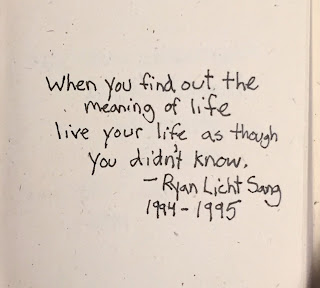 When you find out the
meaning of life
live your life, as though
you didn't know.
- Ryan Licht Sang
1994-1995